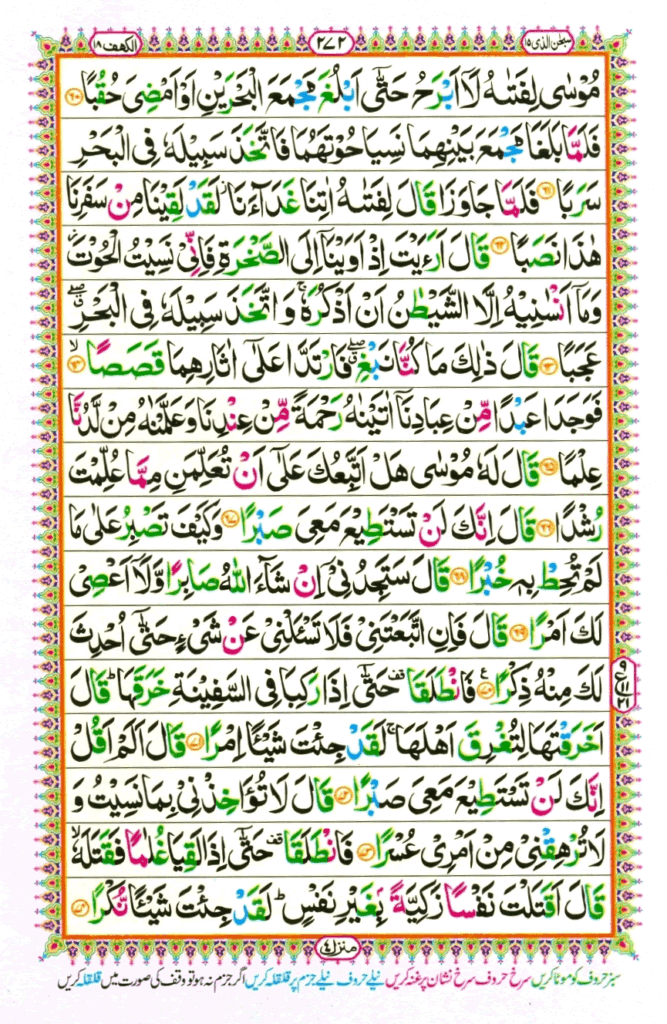 سبحٰن الذی ۱۵
۲۷۲
الکهف ۱۸
مُوْسٰى لِفَتٰىهُ لَاۤ اَبْرَحُ حَتّٰۤى اَبْلُغَ مَجْمَعَ الْبَحْرَيْنِ اَوْ اَمْضِىَ حُقُبًا ﴿۶۰﴾
فَلَمَّا بَلَغَا مَجْمَعَ بَيْنِهِمَا نَسِيَا حُوْتَهُمَا فَاتَّخَذَ سَبِيْلَهٗ فِى الْبَحْرِ
سَرَبًا ﴿۶۱﴾ فَلَمَّا جَاوَزَا قَالَ لِفَتٰىهُ اٰتِنَا غَدَآءَنَا ؗ لَقَدْ لَقِيْنَا مِنْ سَفَرِنَا
هٰذَا نَصَبًا ﴿۶۲﴾ قَالَ اَرَءَيْتَ اِذْ اَوَيْنَاۤ اِلَى الصَّخْرَةِ فَاِنِّىْ نَسِيْتُ الْحُوْتَ ؗ
وَمَاۤ اَنْسٰىنِيْهُ اِلَّا الشَّيْطٰنُ اَنْ اَذْكُرَهٗ ۚ وَ اتَّخَذَ سَبِيْلَهٗ فِى الْبَحْرِ ۖۗ
عَجَبًا ﴿۶۳﴾ قَالَ ذٰلِكَ مَا كُنَّا نَبْغِ ۖۗ فَارْتَدَّا عَلٰۤى اٰثَارِهِمَا قَصَصًا ۙ﴿۶۴﴾
فَوَجَدَا عَبْدًا مِّنْ عِبَادِنَاۤ اٰتَيْنٰهُ رَحْمَةً مِّنْ عِنْدِنَا وَعَلَّمْنٰهُ مِنْ لَّدُنَّا
عِلْمًا ﴿۶۵﴾ قَالَ لَهٗ مُوْسٰى هَلْ اَتَّبِعُكَ عَلٰۤى اَنْ تُعَلِّمَنِ مِمَّا عُلِّمْتَ
رُشْدًا ﴿۶۶﴾ قَالَ اِنَّكَ لَنْ تَسْتَطِيْعَ مَعِىَ صَبْرًا ﴿۶۷﴾ وَكَيْفَ تَصْبِرُ عَلٰى مَا
لَمْ تُحِطْ بِهٖ خُبْرًا ﴿۶۸﴾ قَالَ سَتَجِدُنِىْۤ اِنْ شَآءَ اللّٰهُ صَابِرًا وَّلَاۤ اَعْصِىْ
لَكَ اَمْرًا ﴿۶۹﴾ قَالَ فَاِنِ اتَّبَعْتَنِىْ فَلَا تَسْـَٔلْنِىْ عَنْ شَىْءٍ حَتّٰۤى اُحْدِثَ
لَكَ مِنْهُ ذِكْرًا ﴿۷۰﴾ فَانْطَلَقَا ۥ حَتّٰۤى اِذَا رَكِبَا فِى السَّفِيْنَةِ خَرَقَهَا ؕ قَالَ
اَخَرَقْتَهَا لِتُغْرِقَ اَهْلَهَا ۚ لَقَدْ جِئْتَ شَيْـًٔا اِمْرًا ﴿۷۱﴾ قَالَ اَلَمْ اَقُلْ
اِنَّكَ لَنْ تَسْتَطِيْعَ مَعِىَ صَبْرًا ﴿۷۲﴾ قَالَ لَا تُؤَاخِذْنِىْ بِمَا نَسِيْتُ وَ
لَا تُرْهِقْنِىْ مِنْ اَمْرِىْ عُسْرًا ﴿۷۳﴾ فَانْطَلَقَا ۥ حَتّٰۤى اِذَا لَقِيَا غُلٰمًا فَقَتَلَهٗ ۙ
قَالَ اَقَتَلْتَ نَفْسًا زَكِيَّةً ۢ بِغَيْرِ نَفْسٍ ؕ لَقَدْ جِئْتَ شَيْـًٔا نُّكْرًا ﴿۷۴﴾
۹
ع ۱۱
۲۱
منزل ۴
سبز حروف کو موٹا کریں سرخ حروف سرخ نشان پر غنہ کریں نیلے حروف نیلے جزم پر قلقلہ کریں اگر جزم نہ ہو تو وقف کی صورت میں قلقلہ کریں